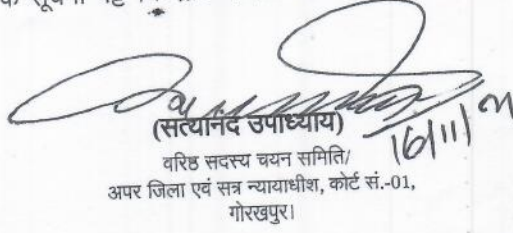 (सत्यानंद उपाध्याय)
16/11/21
वरिष्ठ सदस्य चयन समिति/
अपर जिला एवं सत्र न्यायाधीश, कोर्ट सं.-01,
गोरखपुर।